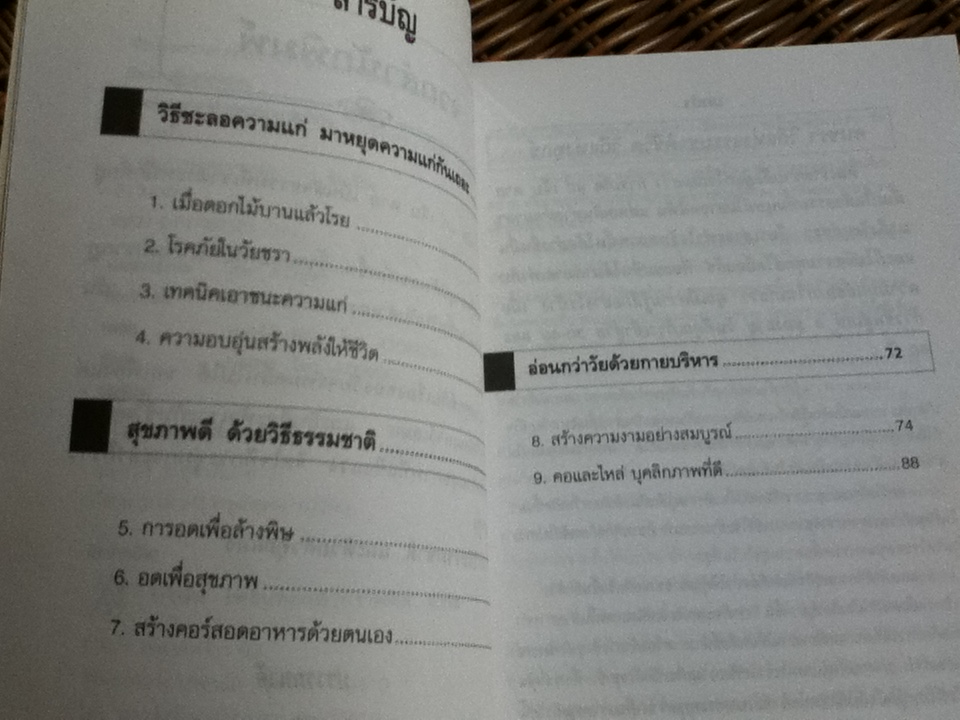 สารบัญ
วิธีชะลอความแก่ มาหยุดความแก่กันเถอะ
1. เมื่อดอกไม้บานแล้วโรย
2. โรคภัยในวัยชรา
3. เทคนิคเอาชนะความแก่
4. ความอบอุ่นสร้างพลังให้ชีวิต
สุขภาพดี ด้วยวิธีธรรมชาติ
5. การอดเพื่อล้างพิษ
6. อดเพื่อสุขภาพ
7. สร้างคอร์สอดอาหารด้วยตนเอง
อ่อนกว่าวัยด้วยกายบริหาร 72
8. สร้างความงามอย่างสมบูรณ์ 74
9. คอและไหล่ บุคลิกภาพที่ดี 88